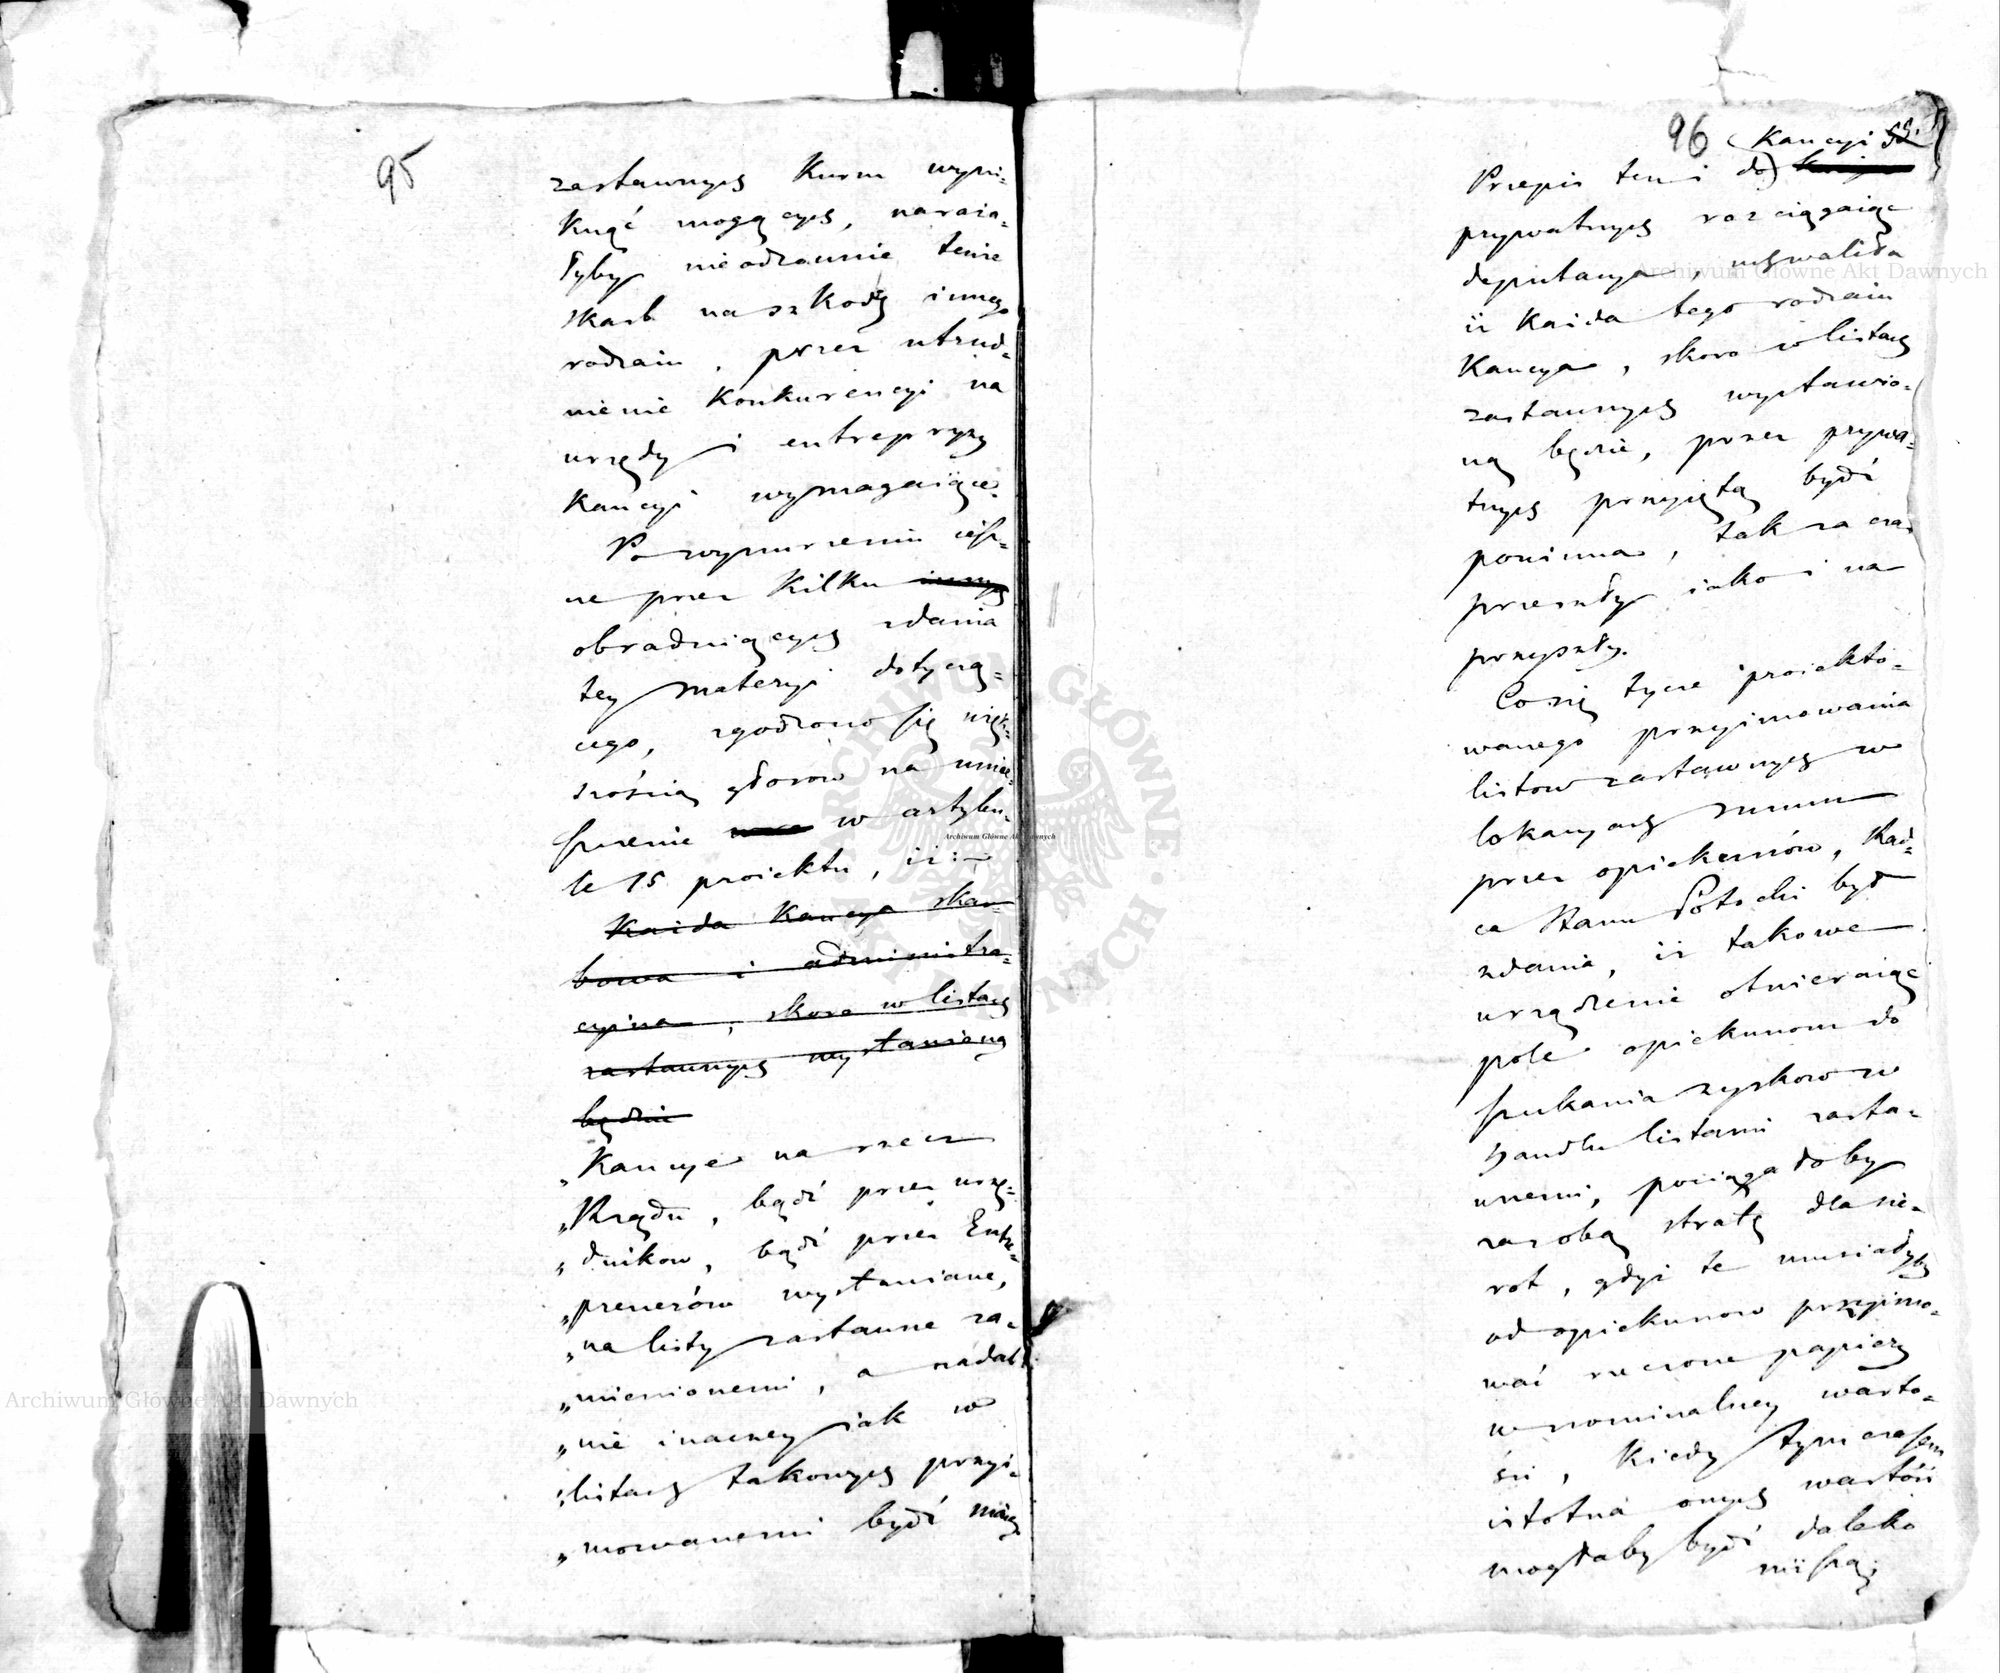 95
zastawnych Kursu wyni-
knąć mogących, naraża-
łyby nieodzownie tenże
skarb na szkodę innego
rodzaiu, przez utrud-
nienie Konkurencyi na
urzędy i entrepryzy
Kaucyi wymagaiące.
Po wynurzeniu ieszcz-
ne przez kilku
obraduiących zdania
tey materyi dotyczą-
cego, zgodzono się więk-
szością głosów na umie-
szczenie w artyku-
le 15 proiektu, iż:
Każda Kaucya skar-
bowa i administra-
cyina, skoro w listach
zastawnych wystawioną
będzie
„Kaucye na rzecz
„Rządu, bądź przez urzę-
„dników, bądź przez Entre-
„prenerów wystawiane,
„na listy zastawne za-
„mienionemi, a nadal
„nie inaczey jak w
„listach takowych przyi-
„mowanemi bydź maią
96
Kaucyi
Przepis ten i do
prywatnych rozciągaiąc
deputacya, uchwaliła
iż Każda tego rodzaiu
Kaucya, skoro w listach
zastawnych wystawio-
ną będzie, przez prywa-
tnych przyiętą bydź
powinna, tak za czas
przeszły iako i na
przyszły.
Co się tycze proiekto-
wanego przyimowania
listow zastawnych w
lokacyach summ
przez opiekunów, Rad-
ca Stanu Potocki był
zdania, iż takowe
urządzenie otwieraiąc
pole opiekunom do
szukania zyskow w
handlu listami zasta-
wnemi, pociągałoby
za sobą stratę dla sie-
rot, gdyż te musiałyby
od opiekunow przyimo-
wać rzeczone papiery
w nominalney warto-
ści, Kiedy tymczasem
istotna onych wartość
mogłaby bydź daleko
niższą;
Archiwum Główne Akt Dawnych
Archiwum Główne Akt Dawnych
Archiwum Główne Akt Dawnych
ARCHIWUM GŁÓWNE AKT DAWNYCH